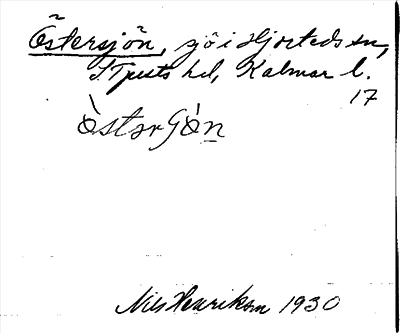 Östersjön, sjö i Hjorteds sn,
S. Tjusts hd, Kalmar l.
17
òstərʃòn
Nils Henrikson 1930